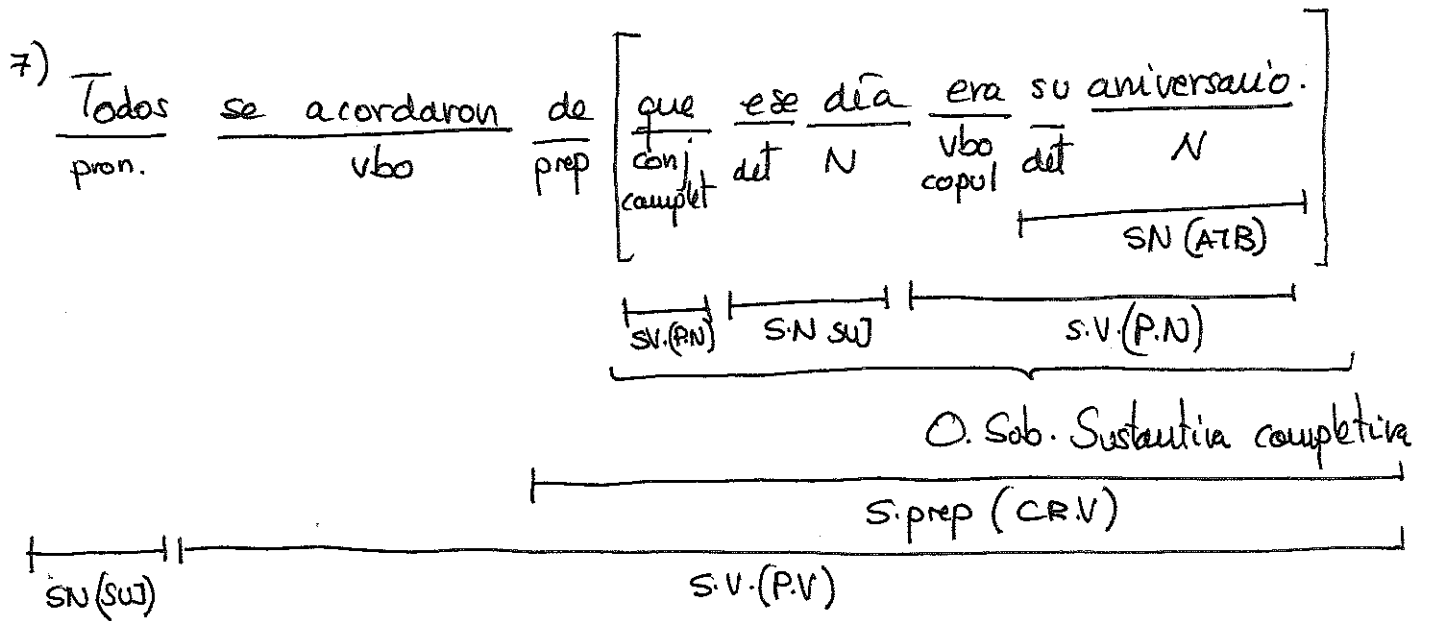 7) Todos se acordaron de [que ese día era su aniversario.]
pron. vbo prep conj det N vbo det N
complet copul
SN (ATB)
SV.(P.N) S.N SUJ S.V.(P.N)
O. Sub. Sustantiva completiva
S.prep (CR.V)
SN (SUJ) S.V.(P.V)